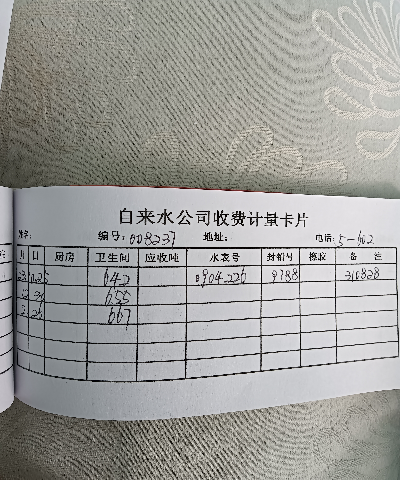 自来水公司收费计量卡片
编号:008237 地址: 电话:5-602
月 日 厨房 卫生间 应收吨 水表号 封铅号 换校 备 注
25 642 0904226 9788 310828
655
26 667